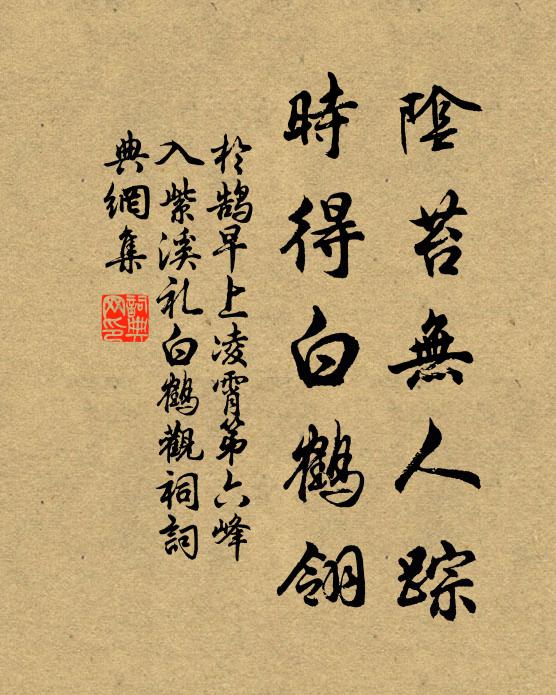 陰苔無人踪
時得白鶴翎
於鵠早上凌霄第六峰
入紫溪礼白鶴觀祠詞
典網集
詞典
网印